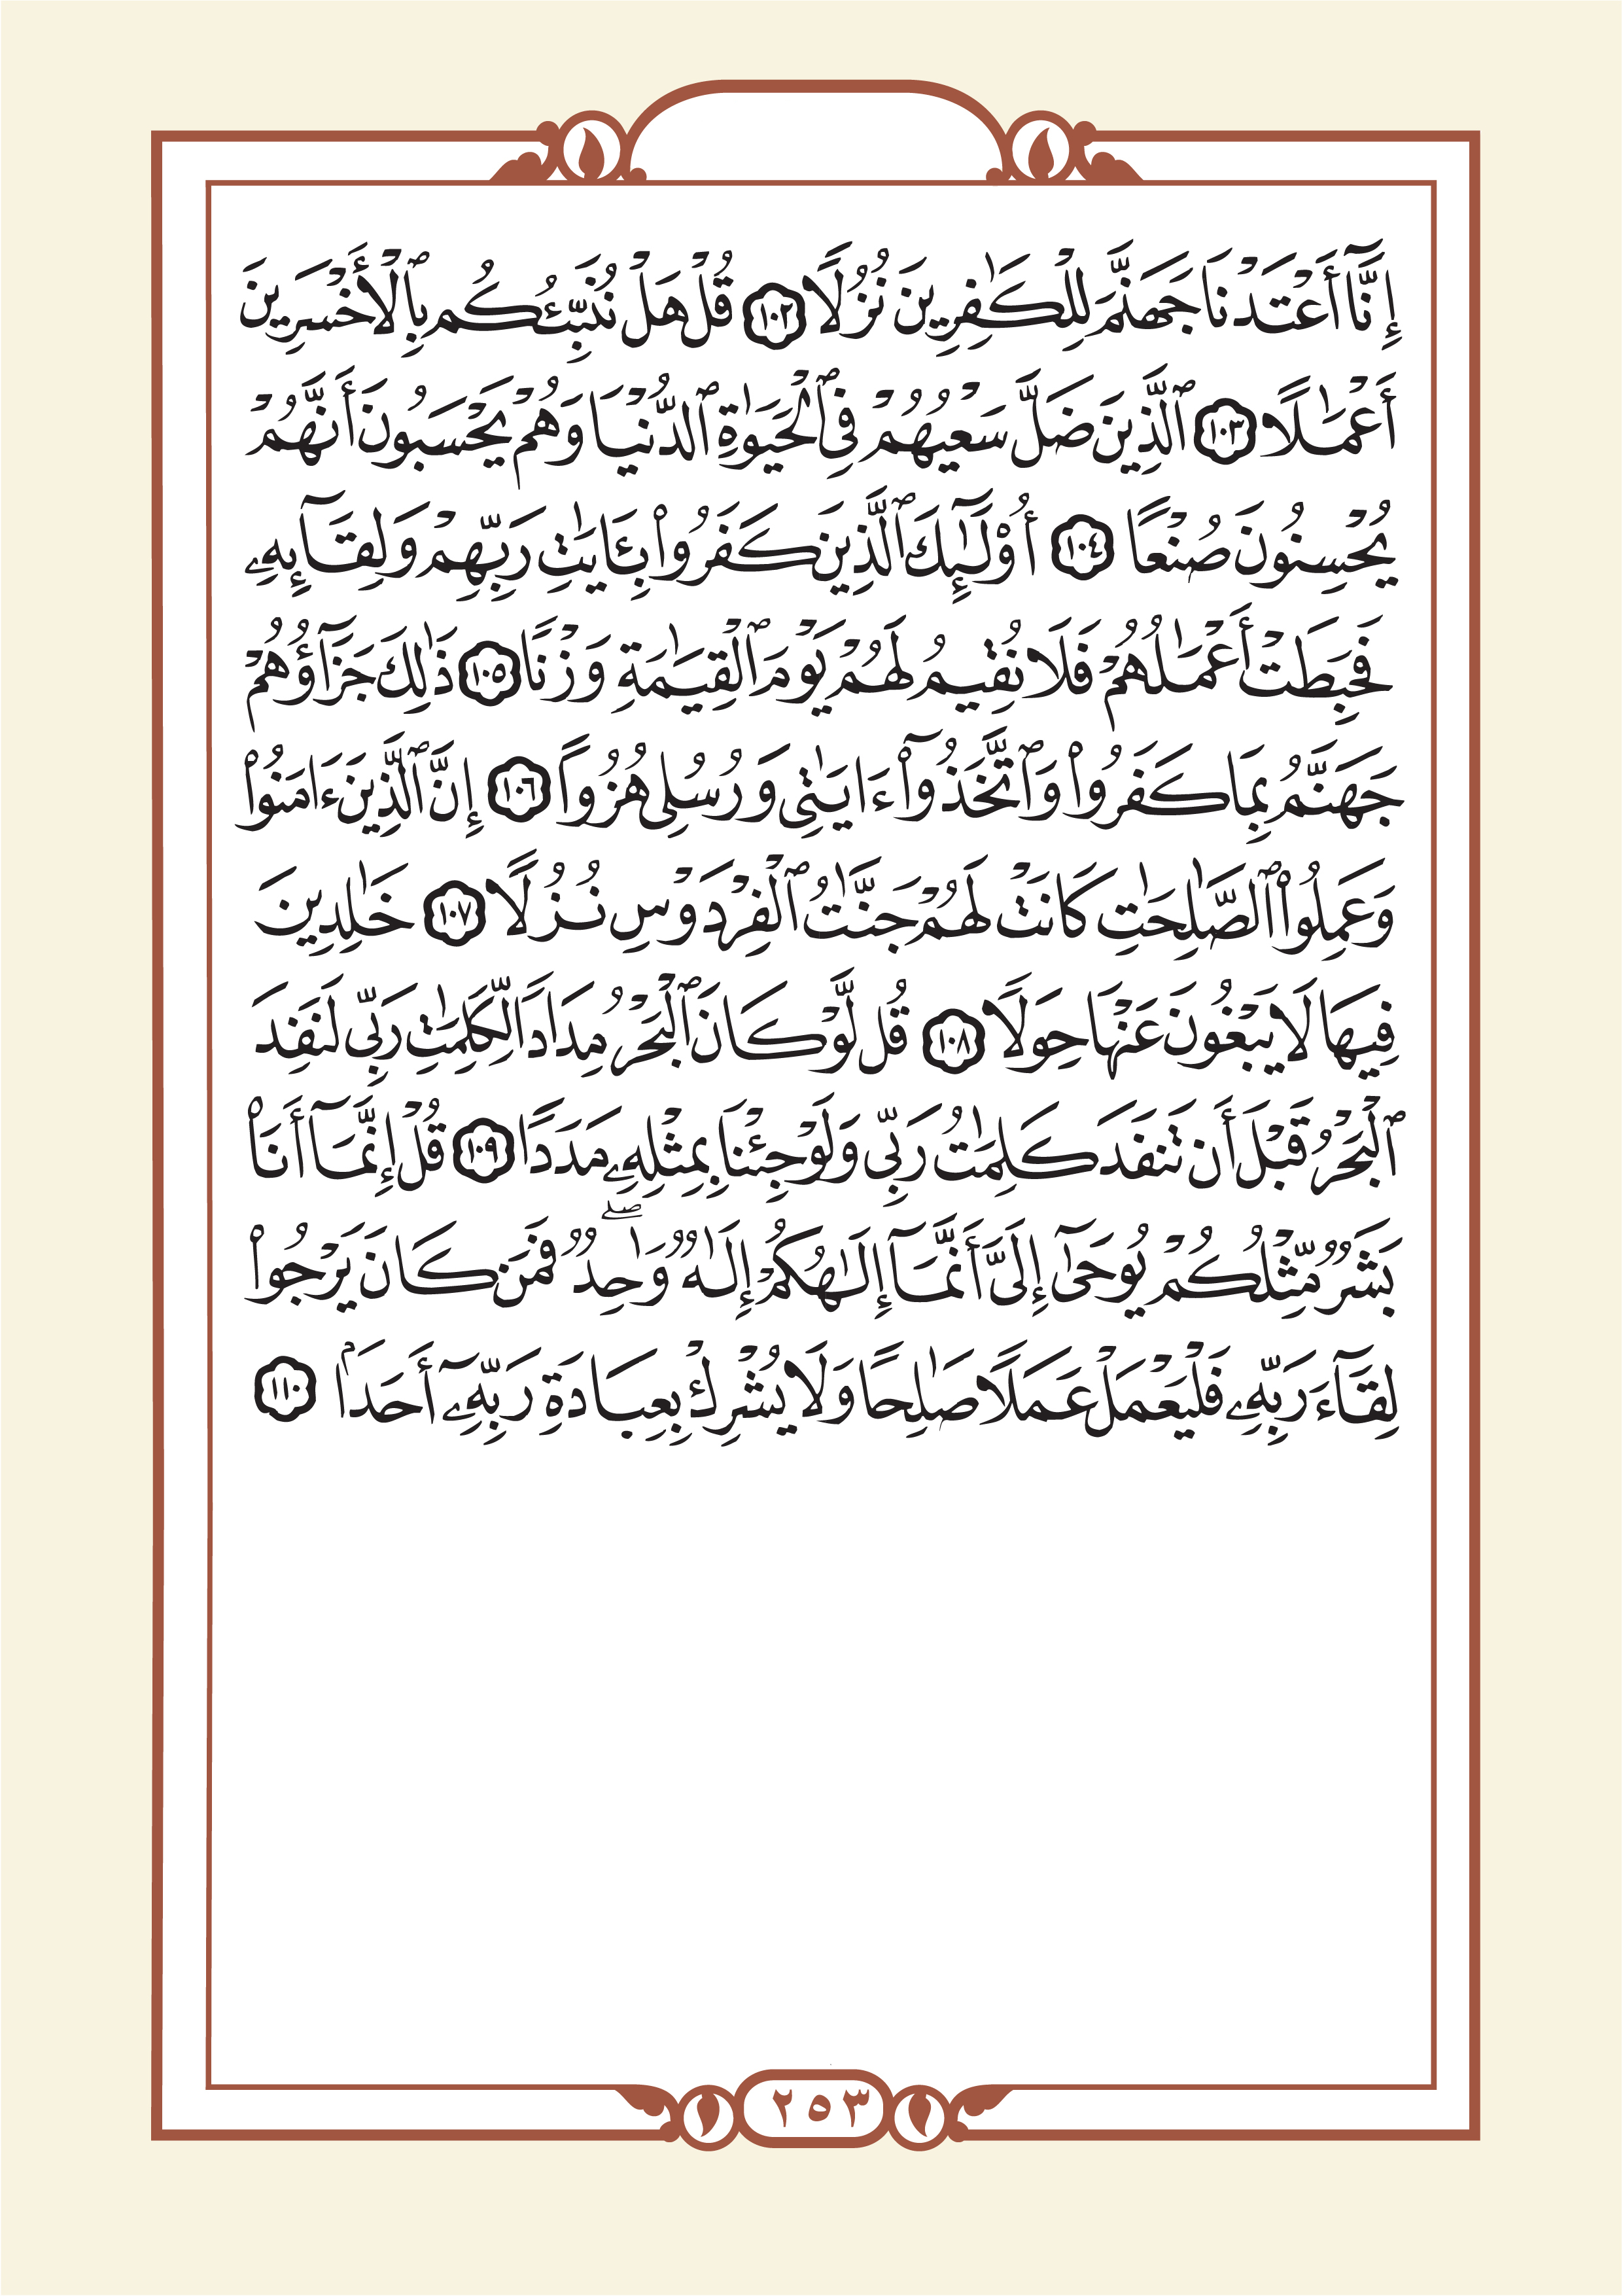 إِنَّآ أَعْتَدْنَا جَهَنَّمَ لِلْكَٰفِرِينَ نُزُلًا ١٠٢ قُلْ هَلْ نُنَبِّئُكُم بِٱلْأَخْسَرِينَ
أَعْمَٰلًا ١٠٣ ٱلَّذِينَ ضَلَّ سَعْيُهُمْ فِي ٱلْحَيَوٰةِ ٱلدُّنْيَا وَهُمْ يَحْسَبُونَ أَنَّهُمْ
يُحْسِنُونَ صُنْعًا ١٠٤ أُوْلَٰٓئِكَ ٱلَّذِينَ كَفَرُواْ بِـَٔايَٰتِ رَبِّهِمْ وَلِقَآئِهِۦ
فَحَبِطَتْ أَعْمَٰلُهُمْ فَلَا نُقِيمُ لَهُمْ يَوْمَ ٱلْقِيَٰمَةِ وَزْنًا ١٠٥ ذَٰلِكَ جَزَآؤُهُمْ
جَهَنَّمُ بِمَا كَفَرُواْ وَٱتَّخَذُوٓاْ ءَايَٰتِي وَرُسُلِي هُزُوًا ١٠٦ إِنَّ ٱلَّذِينَ ءَامَنُواْ
وَعَمِلُواْ ٱلصَّٰلِحَٰتِ كَانَتْ لَهُمْ جَنَّٰتُ ٱلْفِرْدَوْسِ نُزُلًا ١٠٧ خَٰلِدِينَ
فِيهَا لَا يَبْغُونَ عَنْهَا حِوَلًا ١٠٨ قُل لَّوْ كَانَ ٱلْبَحْرُ مِدَادًا لِّكَلِمَٰتِ رَبِّي لَنَفِدَ
ٱلْبَحْرُ قَبْلَ أَن تَنفَدَ كَلِمَٰتُ رَبِّي وَلَوْ جِئْنَا بِمِثْلِهِۦ مَدَدًا ١٠٩ قُلْ إِنَّمَآ أَنَا۠
بَشَرٌ مِّثْلُكُمْ يُوحَىٰٓ إِلَيَّ أَنَّمَآ إِلَٰهُكُمْ إِلَٰهٌ وَٰحِدٌۖ فَمَن كَانَ يَرْجُواْ
لِقَآءَ رَبِّهِۦ فَلْيَعْمَلْ عَمَلًا صَٰلِحًا وَلَا يُشْرِكْ بِعِبَادَةِ رَبِّهِۦٓ أَحَدَۢا ١١٠
٢٥٣